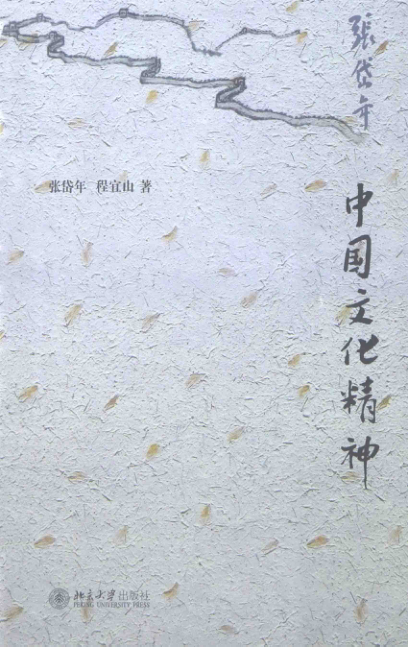 張岱年
中国文化精神
张岱年 程宜山 著
北京大学出版社
PEKING UNIVERSITY PRESS